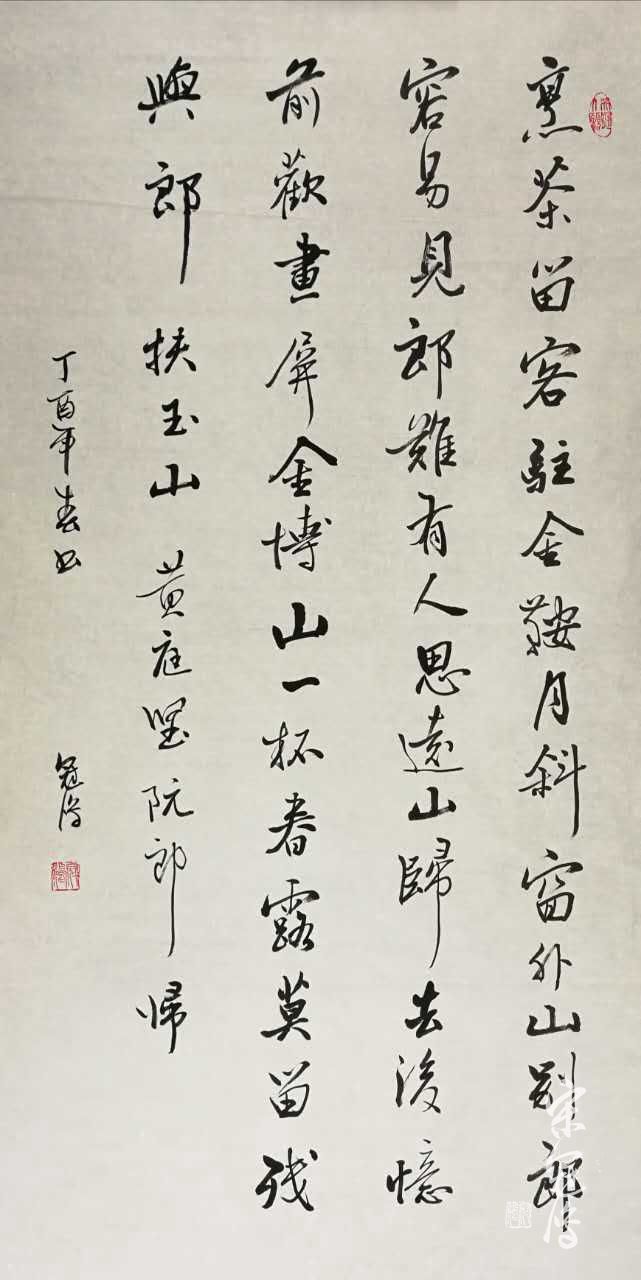 烹茶留客駐金鞍月斜窗外山別郎
容易見郎難有人思遠山歸去後憶
前歡畫屏金博山一杯春露莫留殘
與郎扶玉山 黃庭堅阮郎帰
丁酉年春書 冠淳